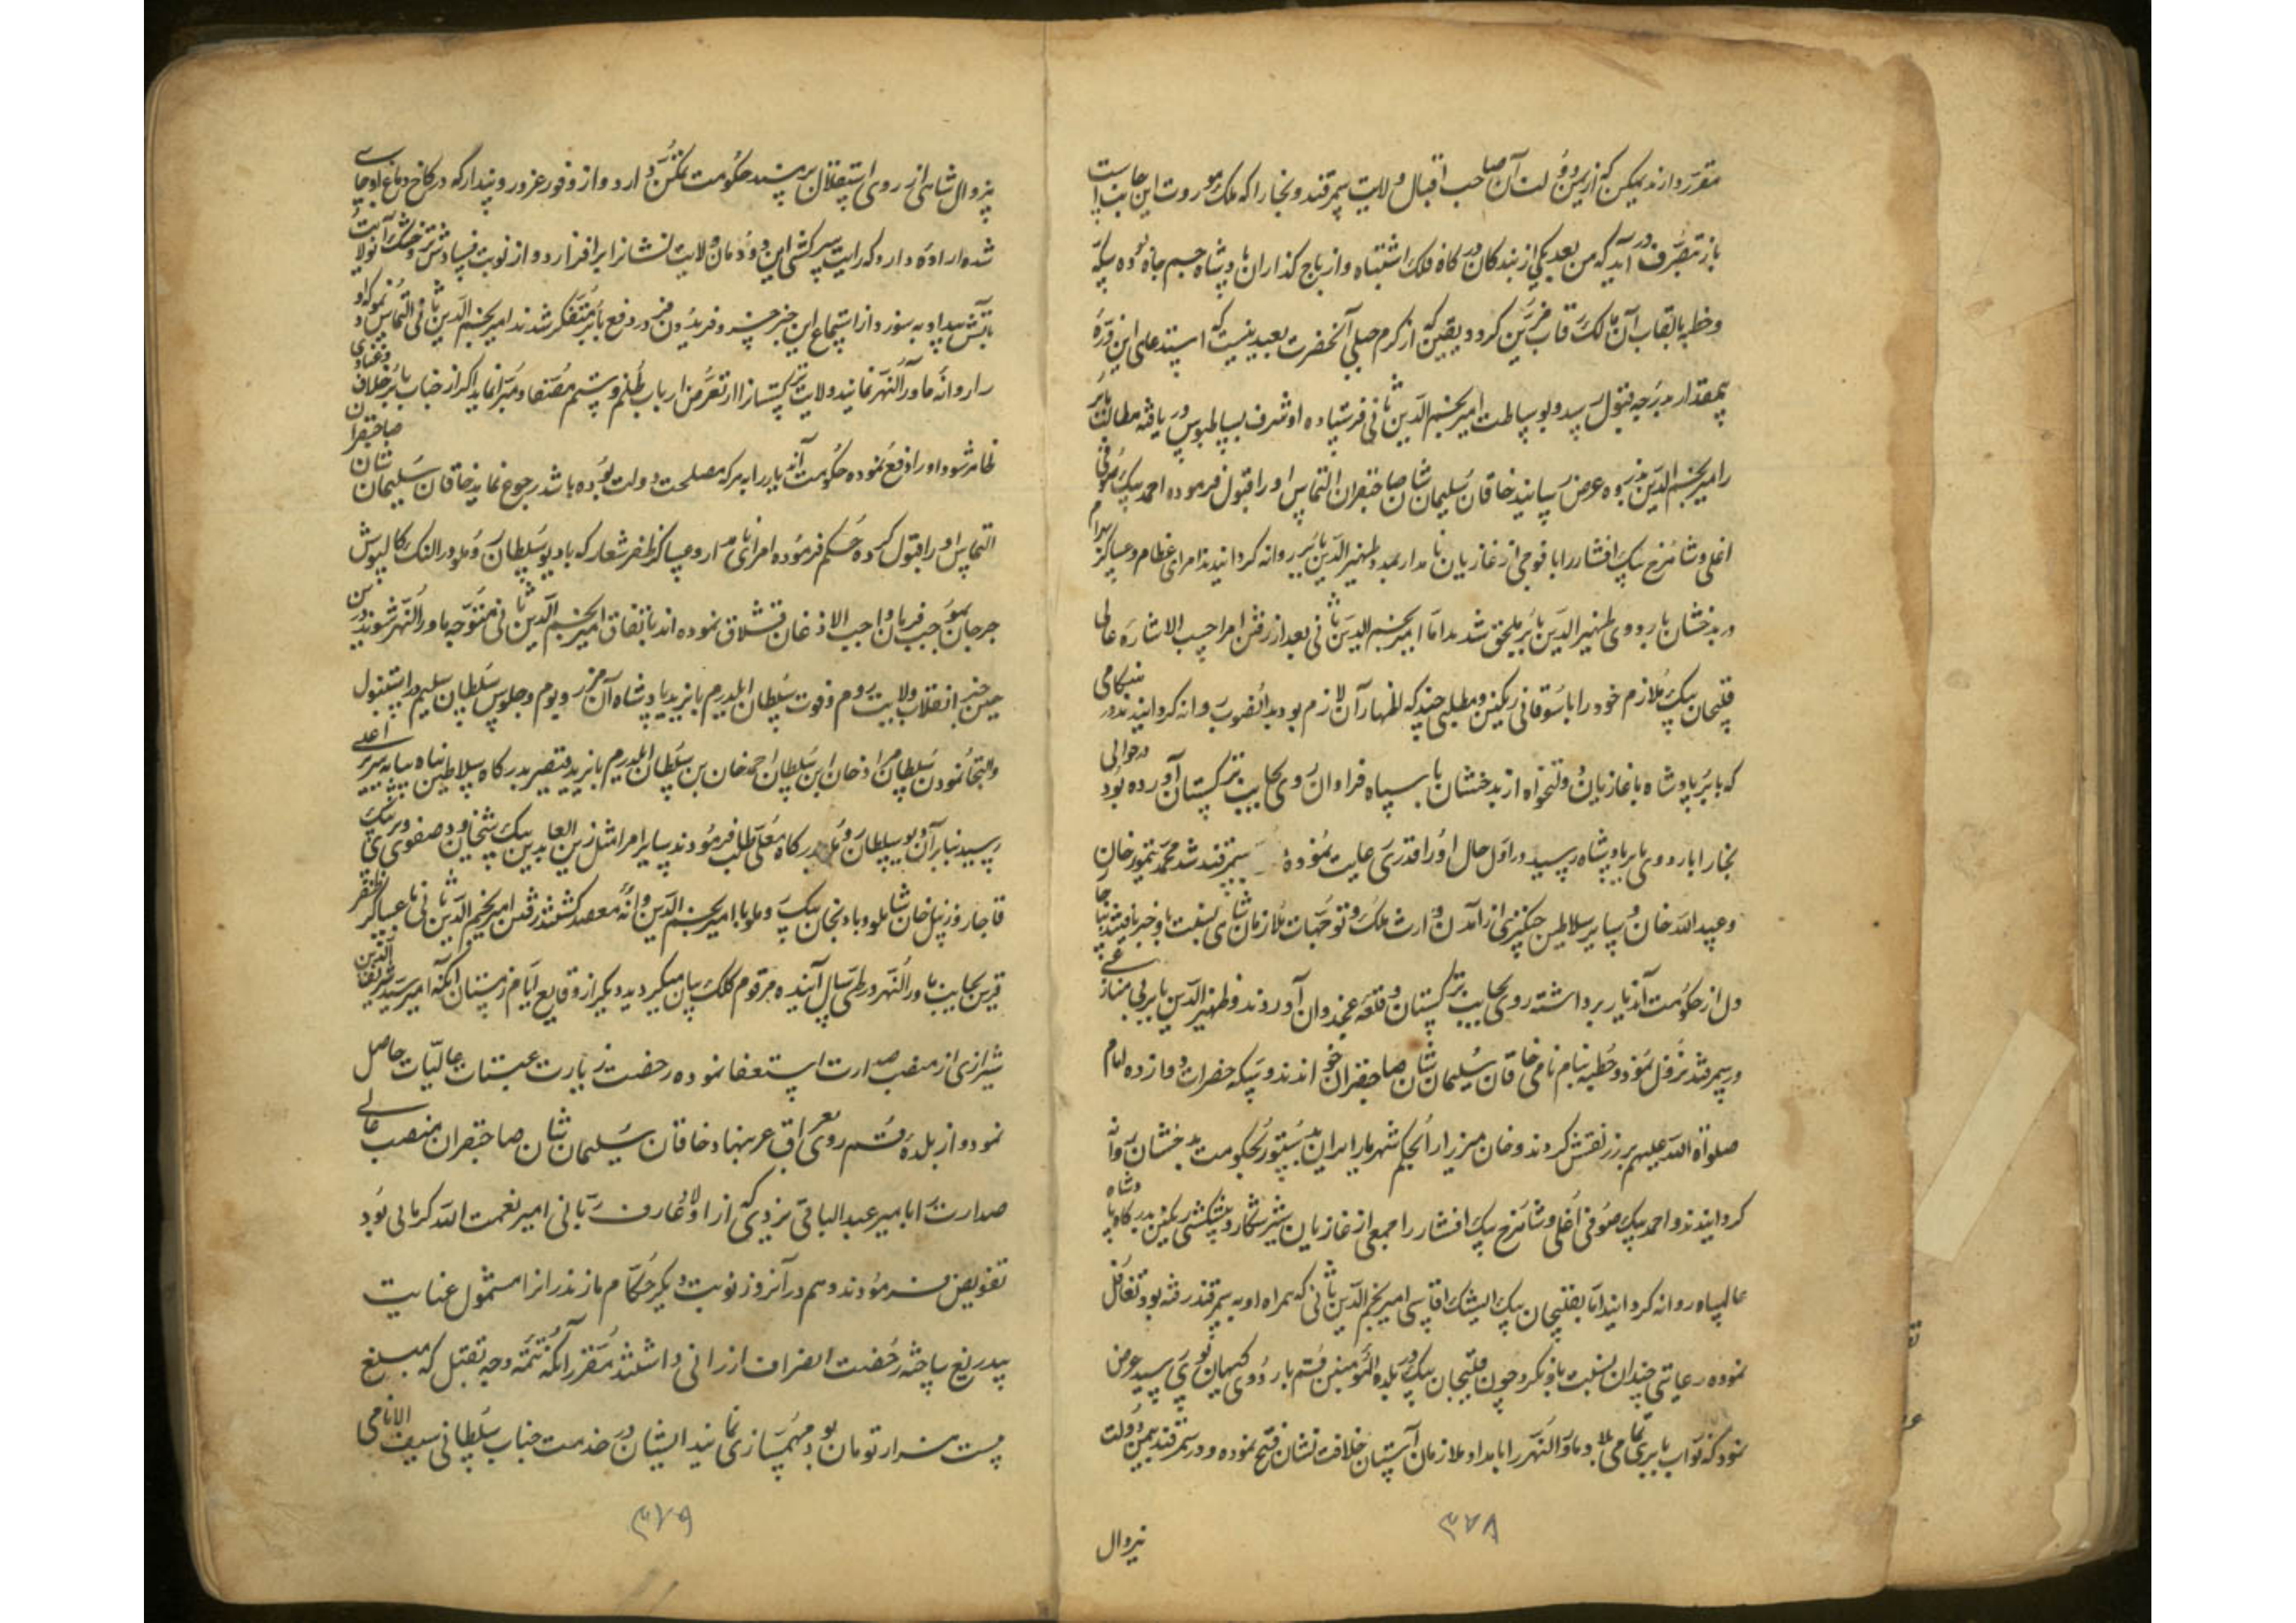 مقرر دارند ممکن که از یمن دولت آن صاحب اقبال ولایت سمرقند و بخارا که ملک موروث این جانب است
باز بتصرف درآید که من بعد یکی از بندکان درکاه فلک اشتباه و از باج کذاران پادشاه جم جاه بوده سکه
و خطبه بالقاب آن مالک رقاب مزین کردد و یقین که از کرم جبلی آنحضرت بعید نیست که استدعای این ذره
بیمقدار بدرجه قبول رسد و بوساطت امیر نجم الدین ثانی فرستاده او شرف بساطبوس دریافته مطالب بابر
را امیر نجم الدین بذروه عرض رسانید خاقان سلیمان شان صاحبقران التماس او را قبول فرموده احمد بیک صوفی
اغلی و شاهرخ بیک افشار را با فوجی از غازیان نامدار بمدد ظهیر الدین بابر روانه کردانیدند امرای عظام و عساکر
در بدخشان باردوی ظهیر الدین بابر ملحق شدند اما امیر نجم الدین ثانی بعد از رفتن امرا حسب الاشاره عالی
قلیجان بیک ملازم خود را با سوقاتی رنکین و مطلبی چند که اظهار آن لازم بود بدانصوب روانه کردانیدند در هنکامی
که بابر پادشاه با غازیان دولتخواه از بدخشان با سپاه فراوان روی بجانب ترکستان آورده بود در حوالی
بخارا باردوی بابر پادشاه رسید در اول حال او را قدری رعایت نموده سمرقند شد محمد تیمور خان
و عبید الله خان و سایر سلاطین چنکیزی از آمدن وارث ملک و توجهات ملازمان شاهی نسبت باو خبر یافتند
دل از حکومت آندیار برداشته روی بجانب ترکستان و قلعه غجدوان آوردند و ظهیر الدین بابر بی منازعی
در سمرقند نزول نمود و خطبه بنام نامی خاقان سلیمان شان صاحبقران خواندند و سکه حضرات دوازده امام
صلواة الله علیهم بر زر نقش کردند و خان میرزا را بحکم شهریار ایران بدستور بحکومت بدخشان روانه
کردانیدند و احمد بیک صوفی اغلی و شاهرخ بیک افشار را با جمعی از غازیان شیر شکار و پیشکشی رنکین بدرکاه پادشاه
عالمپناه روانه کردانید اما بقلیجان بیک ایشک اقاسی امیر نجم الدین ثانی که همراه او به سمرقند رفته بود تغافل
نموده رعایتی چندان نسبت باو نکرد و چون قلیجان بیک در بلده المؤمنین قم باردوی کیهان پوی رسید عرض
نمود که نواب بابری تمامی بلاد ماورالنهر را بامداد ملازمان آستان خلافت نشان فتح نموده و در سمرقند بیمن دولت
بیزوال
۳۷۸
بیزوال شاهی از روی استقلال بر مسند حکومت تمکن دارد و از وفور غرور و پندار که در کاخ دماغ او جای
شده اراده دارد که رایت سرکشی این دودمان ولایت نشانرا برافرازد و از نوبت فساد خشک و تر آن ولایت
بآتش بیداد بسوزد از استماع این خبر خسرو فریدون فر در دفع بابر متفکر شدند امیر نجم الدین ثانی التماس نمود که او
را روانه ماورالنهر نمایند و ولایت ترکستانرا از تعرض ارباب ظلم و ستم مصفا و مبرا نماید اکر از جناب بابر خلاف و عنادی
ظاهر شود او را دفع نموده حکومت آندیار را بهرکه مصلحت دولت بوده باشد رجوع نماید خاقان سلیمان شان صاحبقران
التماس او را قبول کرده حکم فرموده امرای نامدار و عساکر ظفر شعار که با دیو سلطان روملو در النک کالپوش
جرجان بموجب فرمان واجب الاذعان قشلاق نموده اند باتفاق امیر نجم الدین ثانی متوجه ماورالنهر شوند در این
حین خبر انقلاب ولایت روم و فوت سلطان ایلدرم بایزید پادشاه آن مرز و بوم و جلوس سلطان سلیم در استنبول
و التجا نمودن سلطان مراد خان ابن سلطان احمد خان بن سلطان ایلدرم بایزید قیصر بدرکاه سلاطین پناه بپایه سریر اعلی
رسید بنابر آن دیو سلطان روملو بدرکاه معلی طلب فرمودند و سایر امرا مثل زین العابدین بیک شیخاوند صفوی و پیری بیک
قاجار و زینل خان شاملو و بادنجان بیک روملو با امیر نجم الدین روانه مقصد کشتند رفتن امیر نجم الدین ثانی با عساکر ظفر
قرین بجانب ماورالنهر در طی سال آینده مرقوم کلک بیان میکردد دیکر از وقایع ایام زمستان آنکه امیر سید شریف الدین
شیرازی از منصب صدارت استعفا نموده رخصت زیارت عتبات عالیات حاصل
نمود و از بلده قم روی بعراق عرب نهاد خاقان سلیمان شان صاحبقران منصب عالی
صدارت را بامیر عبد الباقی یزدی که از اولاد عارف ربانی امیر نعمت الله کرمانی بود
تفویض فرمودند و هم در آنروز نوبت دیکر حکام مازندرانرا مشمول عنایت
بیدریغ ساخته رخصت انصراف ارزانی داشتند مقرر آنکه تتمه وجه تقبل که مبلغ
بیست هزار تومان بود مهمسازی نمایند ایشان در خدمت جناب سلطانی سیف الانامی
۳۷۹